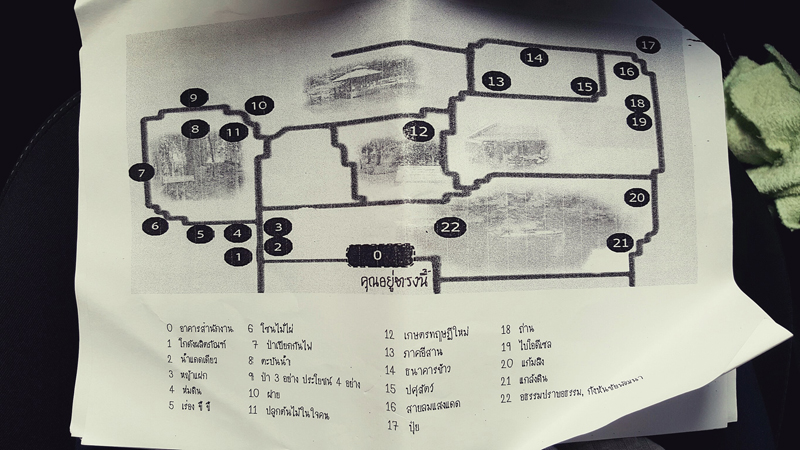 17
14
16
13
15
9
10
18
8
11
12
19
7
20
6
5
4
3
22
2
21
1
0
คุณอยู่ตรงนี้
0 อาคารสำนักงาน
1 โกดังผลิตภัณฑ์
2 น้ำแดดเดียว
3 หญ้าแฝก
4 ห่มดิน
5 เรื่อง จี จี
6 โซนไม้ไผ่
7 ป่าเปียกกันไฟ
8 ตะบันน้ำ
9 ป่า 3 อย่าง ประโยชน์ 4 อย่าง
10 ฝาย
11 ปลูกต้นไม้ในใจคน
12 เกษตรทฤษฎีใหม่
13 ภาคอีสาน
14 ธนาคารข้าว
15 ปศุสัตว์
16 สายลมแสงแดด
17 ปุ๋ย
18 ถ่าน
19 ไบโอดีเซล
20 แก้มลิง
21 แกล้งดิน
22 อธรรมปราบอธรรม, กังหันชัยพัฒนา